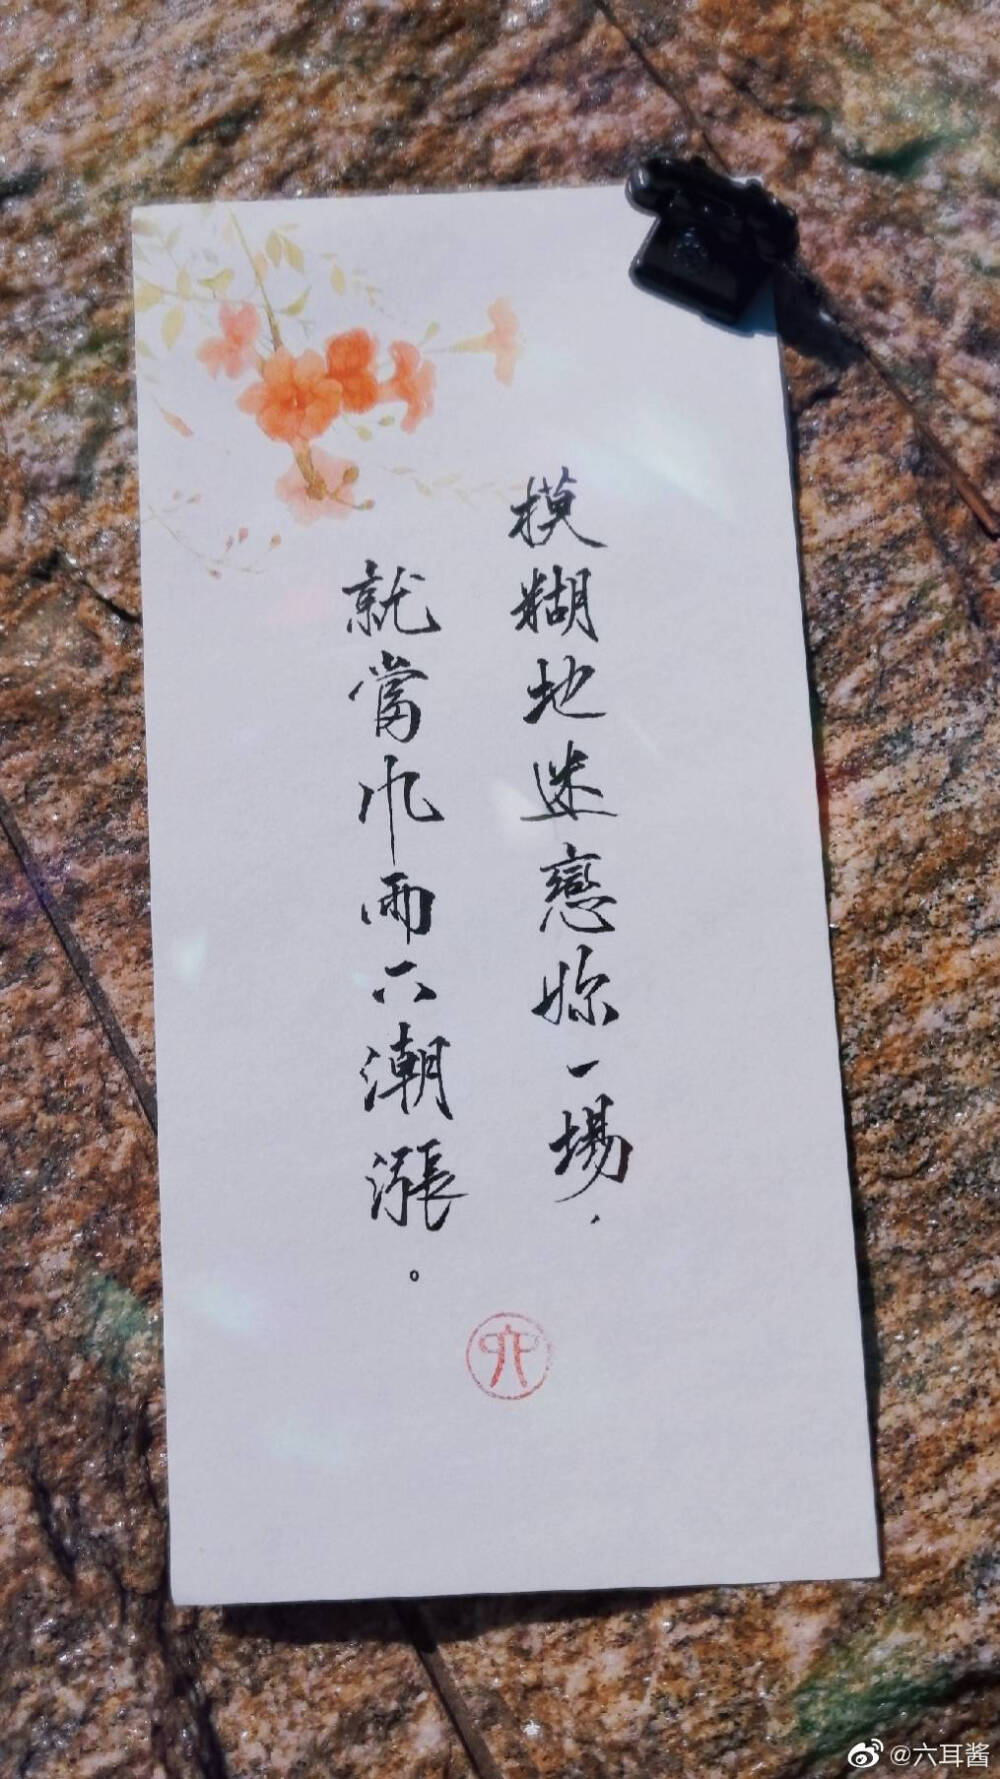 模糊地迷戀妳一場，
就當風雨下潮漲。
@六耳酱